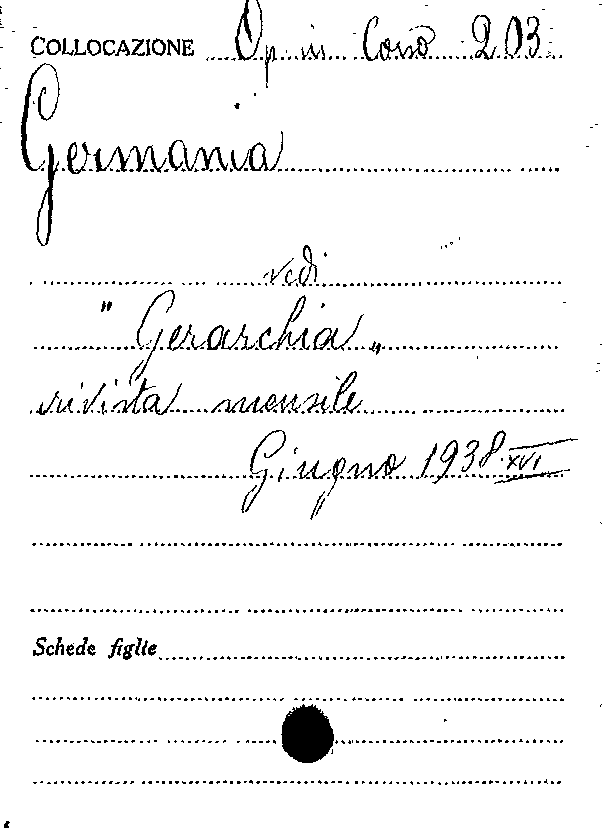 COLLOCAZIONE Op. in Corso 203
Germania
vedi
"Gerarchia„
rivista mensile
Giugno 1938 XVI
Schede figlie